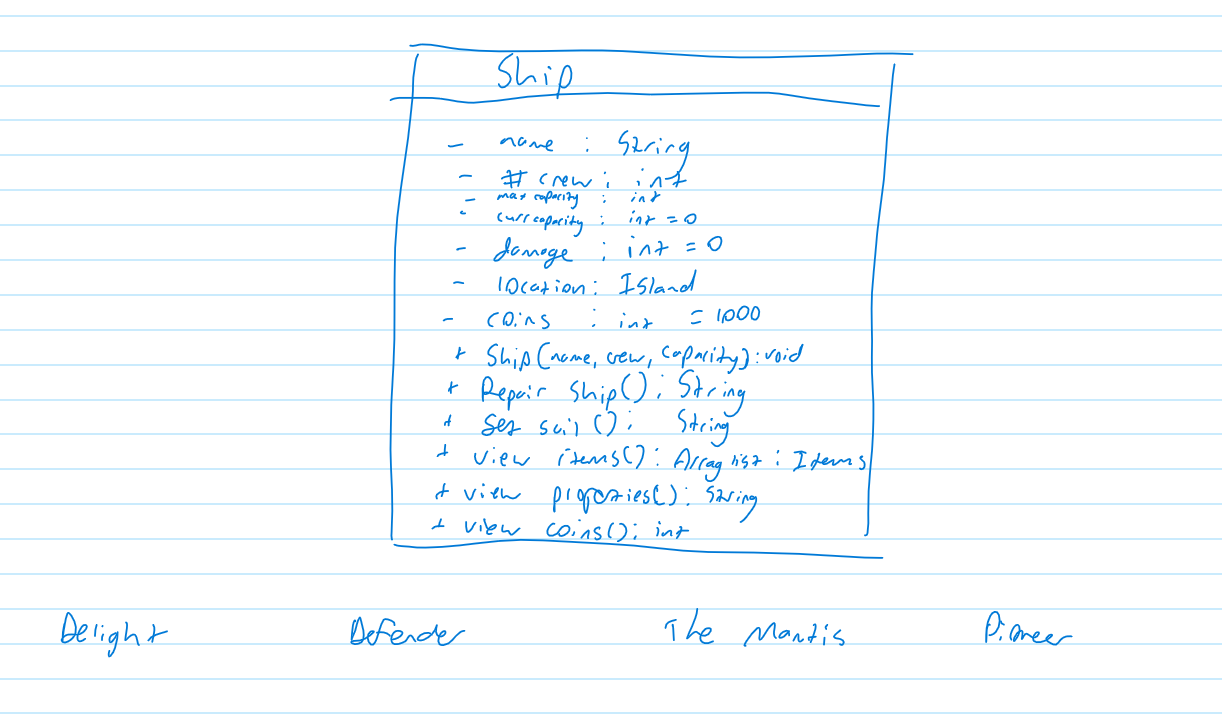 Ship
- name : String
- # crew : int
- max capacity : int
- curr capacity : int = 0
- damage : int = 0
- location : Island
- coins : int = 1000
+ Ship(name, crew, capacity) : void
+ Repair ship() : String
+ Set sail () : String
+ view items() : Array list : Items
+ view properties() : String
+ view coins() : int
Delight Defender The Mantis Pioneer